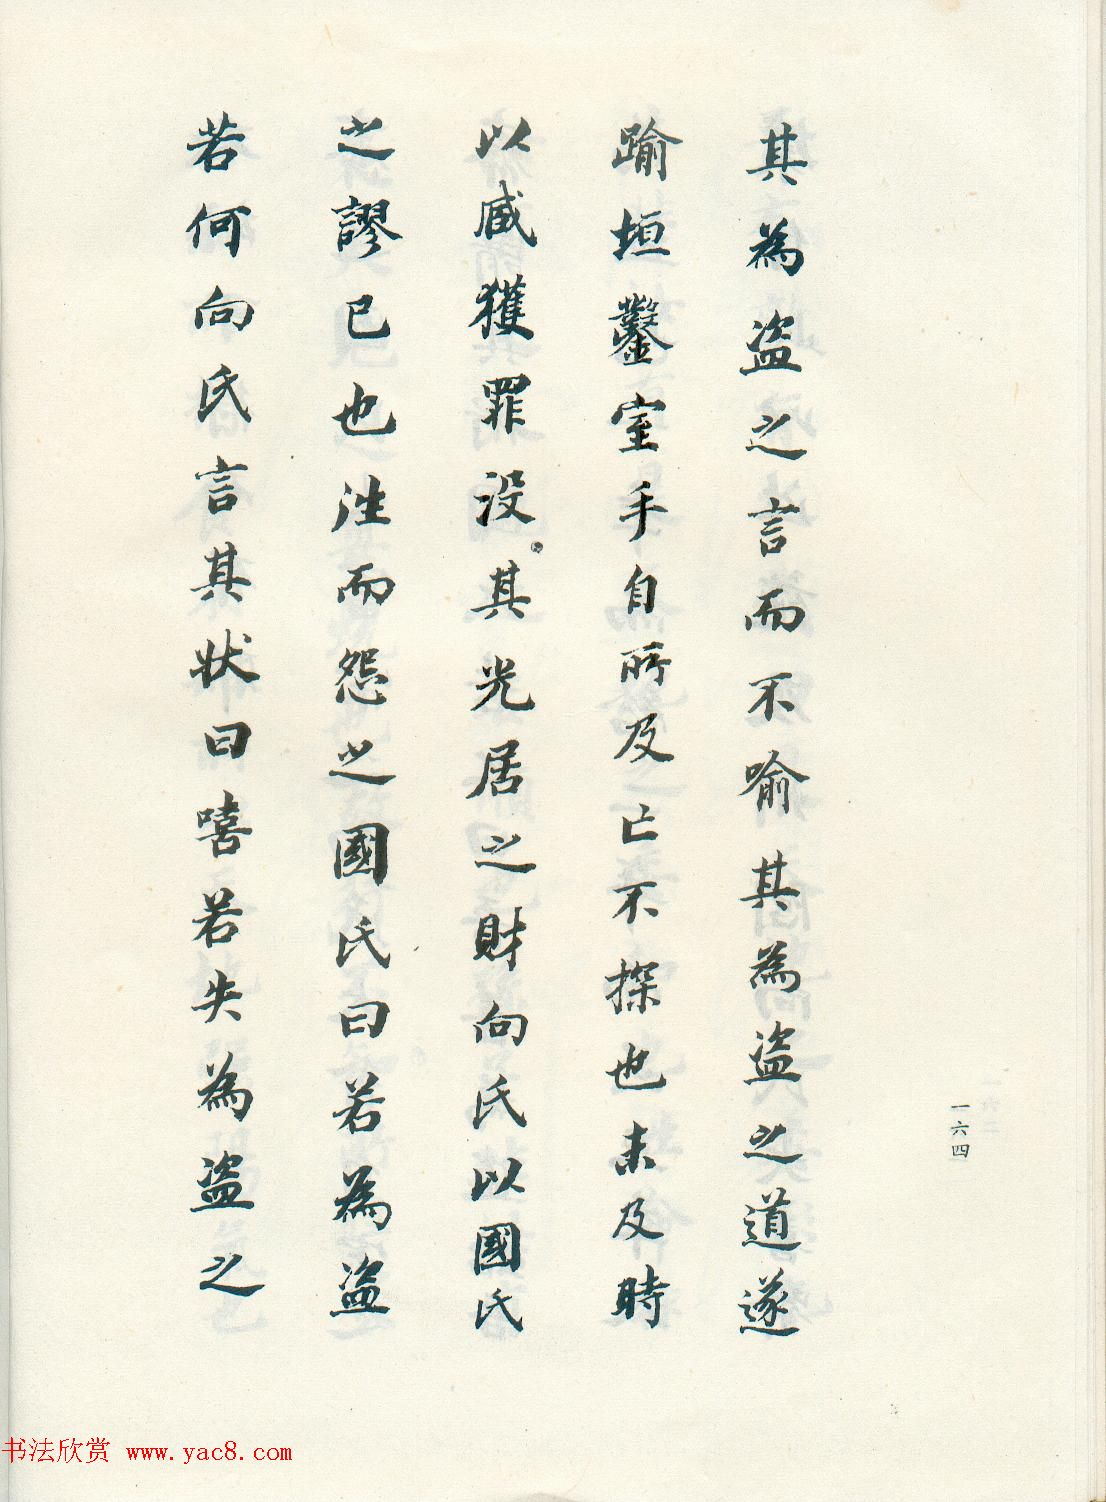 其為盜之言而不喻其為盜之道遂
踰垣鑿室手自所及亡不探也未及時
以臧獲罪没其光居之財向氏以國氏
之謬已也往而怨之國氏曰若為盜
若何向氏言其狀曰嘻若失為盜之
一六四
书法欣赏 www.yac8.com